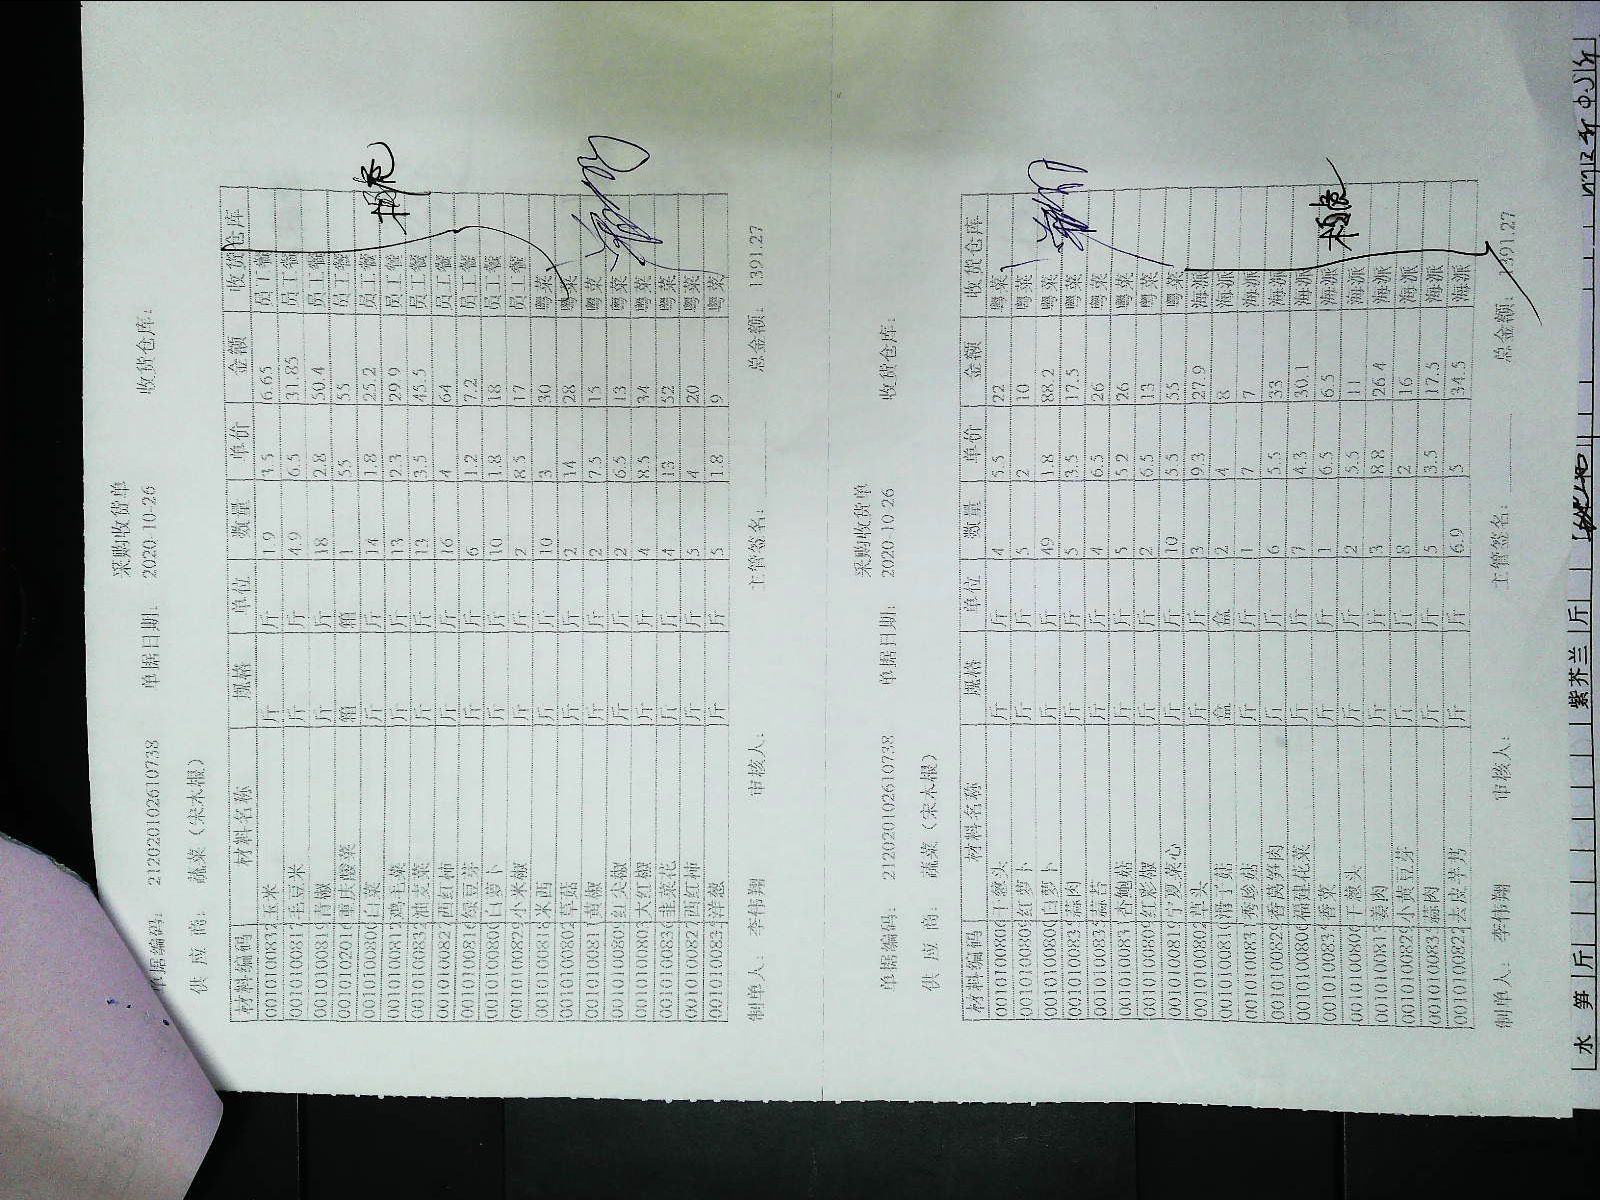 采购收货单
单据编码： 212020102610738 单据日期： 2020-10-26 收货仓库：
供 应 商： 蔬菜（宋木根）
材料编码 材料名称 规格 单位 数量 单价 金额 收货仓库
0010100832 玉米 斤 斤 1.9 3.5 6.65 员工餐
0010100817 毛豆米 斤 斤 4.9 6.5 31.85 员工餐
0010100819 青椒 斤 斤 18 2.8 50.4 员工餐
0010102016 重庆酸菜 箱 箱 1 55 55 员工餐
0010100800 白菜 斤 斤 14 1.8 25.2 员工餐
0010100812 鸡毛菜 斤 斤 13 2.3 29.9 员工餐
0010100832 油麦菜 斤 斤 13 3.5 45.5 员工餐
0010100827 西红柿 斤 斤 16 4 64 员工餐
0010100816 绿豆芽 斤 斤 6 1.2 7.2 员工餐
0010100800 白萝卜 斤 斤 10 1.8 18 员工餐
0010100829 小米椒 斤 斤 2 8.5 17 员工餐
0010100818 米西 斤 斤 10 3 30 粤菜
0010100802 草菇 斤 斤 2 14 28 粤菜
0010100811 黄椒 斤 斤 2 7.5 15 粤菜
0010100809 红尖椒 斤 斤 2 6.5 13 粤菜
0010100803 大红椒 斤 斤 4 8.5 34 粤菜
0010100836 韭菜花 斤 斤 4 13 52 粤菜
0010100827 西红柿 斤 斤 5 4 20 粤菜
0010100832 洋葱 斤 斤 5 1.8 9 粤菜
制单人： 李伟翔 审核人： 主管签名： 总金额： 1391.27
采购收货单
单据编码： 212020102610738 单据日期： 2020-10-26 收货仓库：
供 应 商： 蔬菜（宋木根）
材料编码 材料名称 规格 单位 数量 单价 金额 收货仓库
0010100806 干葱头 斤 斤 4 5.5 22 粤菜
0010100809 红萝卜 斤 斤 5 2 10 粤菜
0010100800 白萝卜 斤 斤 49 1.8 88.2 粤菜
0010100835 蒜肉 斤 斤 5 3.5 17.5 粤菜
0010100835 蒜苔 斤 斤 4 6.5 26 粤菜
001010083 杏鲍菇 斤 斤 5 5.2 26 粤菜
0010100809 红彩椒 斤 斤 2 6.5 13 粤菜
0010100819 宁夏菜心 斤 斤 10 5.5 55 粤菜
0010100802 草头 斤 斤 3 9.3 27.9 海派
0010100810 滑子菇 盒 盒 2 4 8 海派
001010083 秀珍菇 斤 斤 1 7 7 海派
0010100829 香莴笋肉 斤 斤 6 5.5 33 海派
0010100806 福建花菜 斤 斤 7 4.3 30.1 海派
001010083 香菜 斤 斤 1 6.5 6.5 海派
0010100806 干葱头 斤 斤 2 5.5 11 海派
0010100813 姜肉 斤 斤 3 8.8 26.4 海派
0010100829 小黄豆芽 斤 斤 8 2 16 海派
0010100835 蒜肉 斤 斤 5 3.5 17.5 海派
0010100822 去皮芋艿 斤 斤 6.9 5 34.5 海派
制单人： 李伟翔 审核人： 主管签名： 总金额： 1391.27
水 笋 斤 紫芥兰 斤